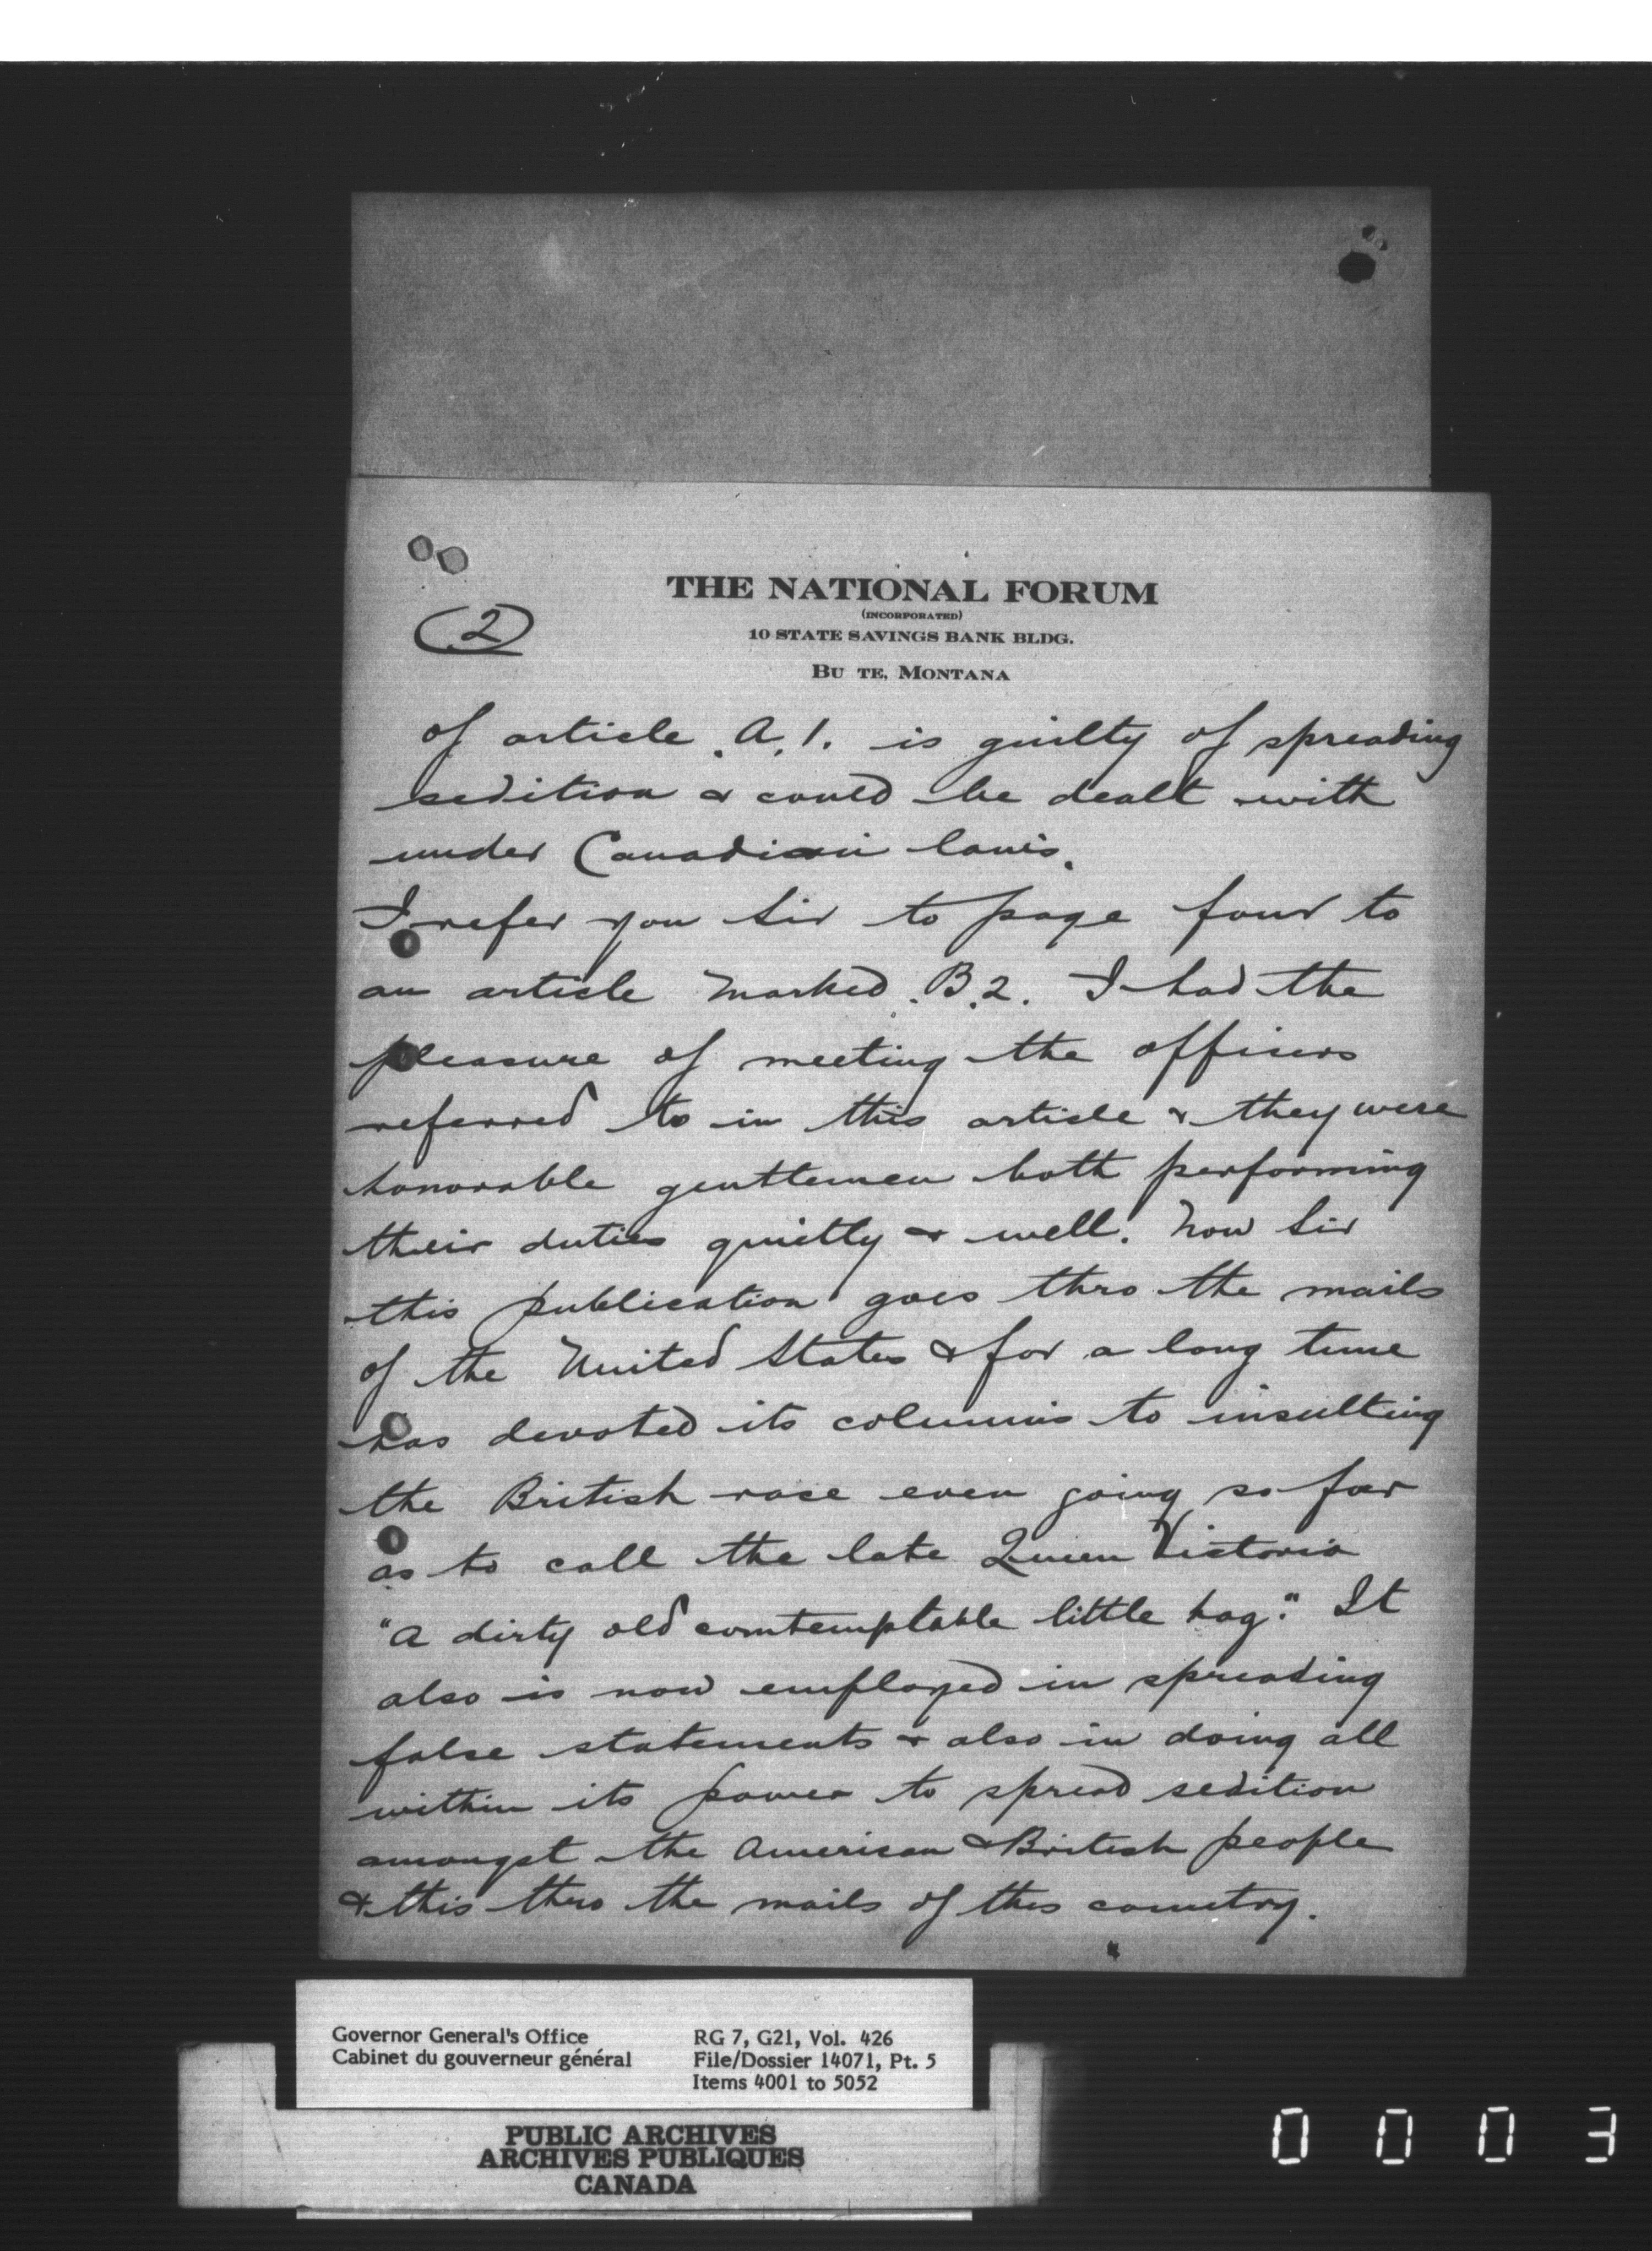 THE NATIONAL FORUM
(INCORPORATED)
10 STATE SAVINGS BANK BLDG.
BU TE, MONTANA
(2)
of article .A.1. is guilty of spreading
sedition & could be dealt with
under Canadian laws.
I refer you Sir to page four to
an article marked .B.2. I had the
pleasure of meeting the officers
referred to in this article & they were
honorable gentlemen both performing
their duties quietly & well. Now Sir
this publication goes thro the mails
of the United States & for a long time
has devoted its columns to insulting
the British race even going so far
as to call the late Queen Victoria
"A dirty old comtemptable little hag." It
also is now employed in spreading
false statements & also in doing all
within its power to spread sedition
amongst the American & British people
& this thro the mails of this country.
Governor General's Office
Cabinet du gouverneur général
RG 7, G21, Vol. 426
File/Dossier 14071, Pt. 5
Items 4001 to 5052
PUBLIC ARCHIVES
ARCHIVES PUBLIQUES
CANADA
0003